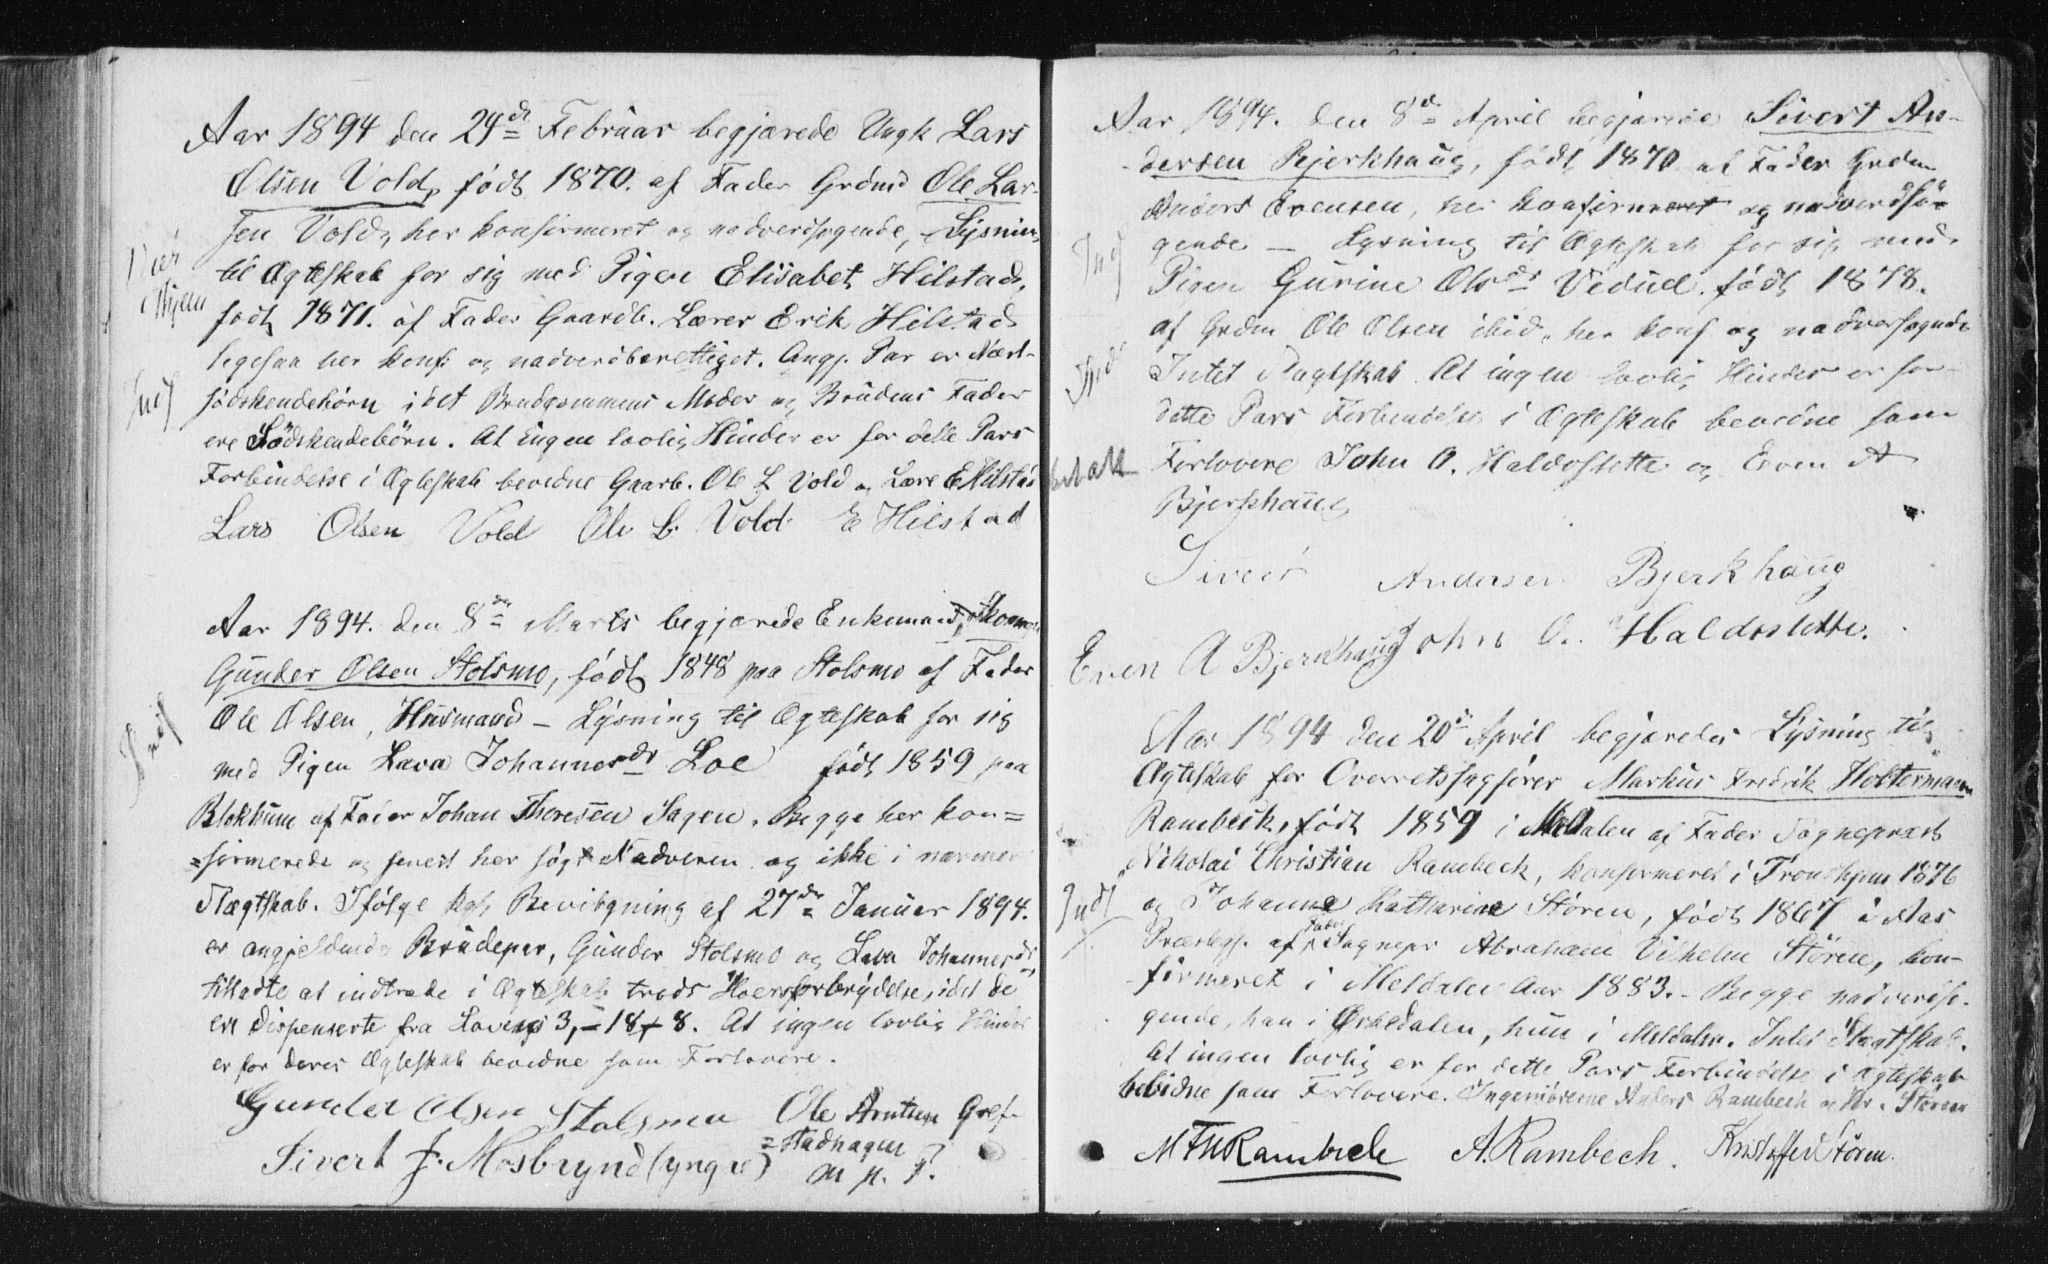 Aar 1894 den 24de Februar begjærede Ungk Lars
Olsen Vold, født 1870. af Fader Grdmd Ole Lar-
sen Vold, her konfirmeret og nadversøgende, Lysning
til Ægteskab for sig med Pigen Elisabet Hilstad,
født 1871. af Fader Gaardb. Lærer Erik Hilstad
ligesaa her konf. og nadverberettiget. Angj. Par er Næst-
södskendebörn idet Brudgommens Moder og Brudens Fader
ere Södskendebörn. At ingen lovlig Hinder er for dette Pars
Forbindelse i Ægteskab bevidne Gaarb. Ole L Vold og Lære E Hilstad
Lars Olsen Vold Ole L. Vold E Hilstad
Indf
Aar 1894. den 8de Marts begjærede Enkemand,
Gunder Olsen Stolsmo, født 1848 paa Stolsmo af Fader
Ole Olsen, Husmand – Lysning til Ægteskab for sig
med Pigen Lava Johannesdr Loe født 1859 paa
Blokhum af Fader Johan Thoresen Sagen. Begge her kon=
=firmerede og senest her søgt Nadveren og ikke i nærmer
Slægtskab. Ifølge kgl. Bevilgning af 27de Januar 1894.
er angjeldende Brudepar, Gunder Stolsmo og Lava Johannesdr,
tilladte at indtræde i Ægteskab trods Hoersforbrydelse, idet de
ere dispenserte fra Lovens 3,–18–8. At ingen lovlig Hinder
er for deres Ægteskab bevidne som Forlovere.
Gunder Olsen Stolsmo Ole Arntsen Gref-
=stadhagen
Sivert J. Mosbrynd (yngre) m. p. P.
Indf
Aar 1894. den 8de April begjærede Sivert An-
dersen Bjerkhaug, født 1870 af Fader Grdm
Anders Evensen, her konfirmeret og nadversö-
gende – Lysning til Ægteskab for sig med
Pigen Gurine Olsdr Vedul. født 1878.
af Grdm Ole Olsen ibid. her konf og nadversøgende
Intet Slægtskab. At ingen lovlig Hinder er for
dette Pars Forbindelse i Ægteskab bevidne som
Forlovere John O. Haldoslette og Even A
Bjerkhaug
Indf
Sivert Andersen Bjerkhaug
Even A Bjerkhaug John O. Haldsslette.
Aar 1894 den 20de April begjæredes Lysning til
Ægteskab for Overretssagfører Markus Fredrik Holtermann
Rambeck, født 1859 i Meldalen af Fader Sogneprest
Nikolai Christian Rambeck, konfirmeret i Tronhjem 1876
og Johanna Katharina Stören, født 1867 i Aas
Præstegj. af Fader Sognepr Abraham Vilhelm Stören, kon-
firmeret i Meldalen Aar 1883.– Begge nadversö-
gende, han i Örkedalen, hun i Meldalen. Intet Slægtskab.
At ingen lovlig er for dette Pars Forbindelse i Ægteskab
bevidne som Forlovere. Ingeniörerne Anders Rambech og Kr. Stören
Indf
M F H Rambeck A. Rambech. Kristoffer Stören.